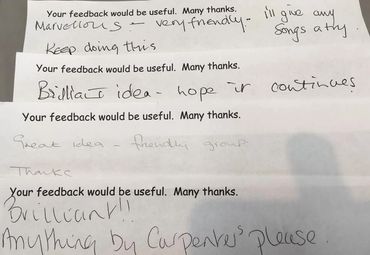 Your feedback would be useful. Many thanks.
Marvellous - very friendly - I'll give any
songs a try.
Keep doing this
Your feedback would be useful. Many thanks.
Brilliant idea - hope it continues
Your feedback would be useful. Many thanks.
Great idea - friendly group
Thanks
Your feedback would be useful. Many thanks.
Brilliant!!
Anything by Carpenters please.